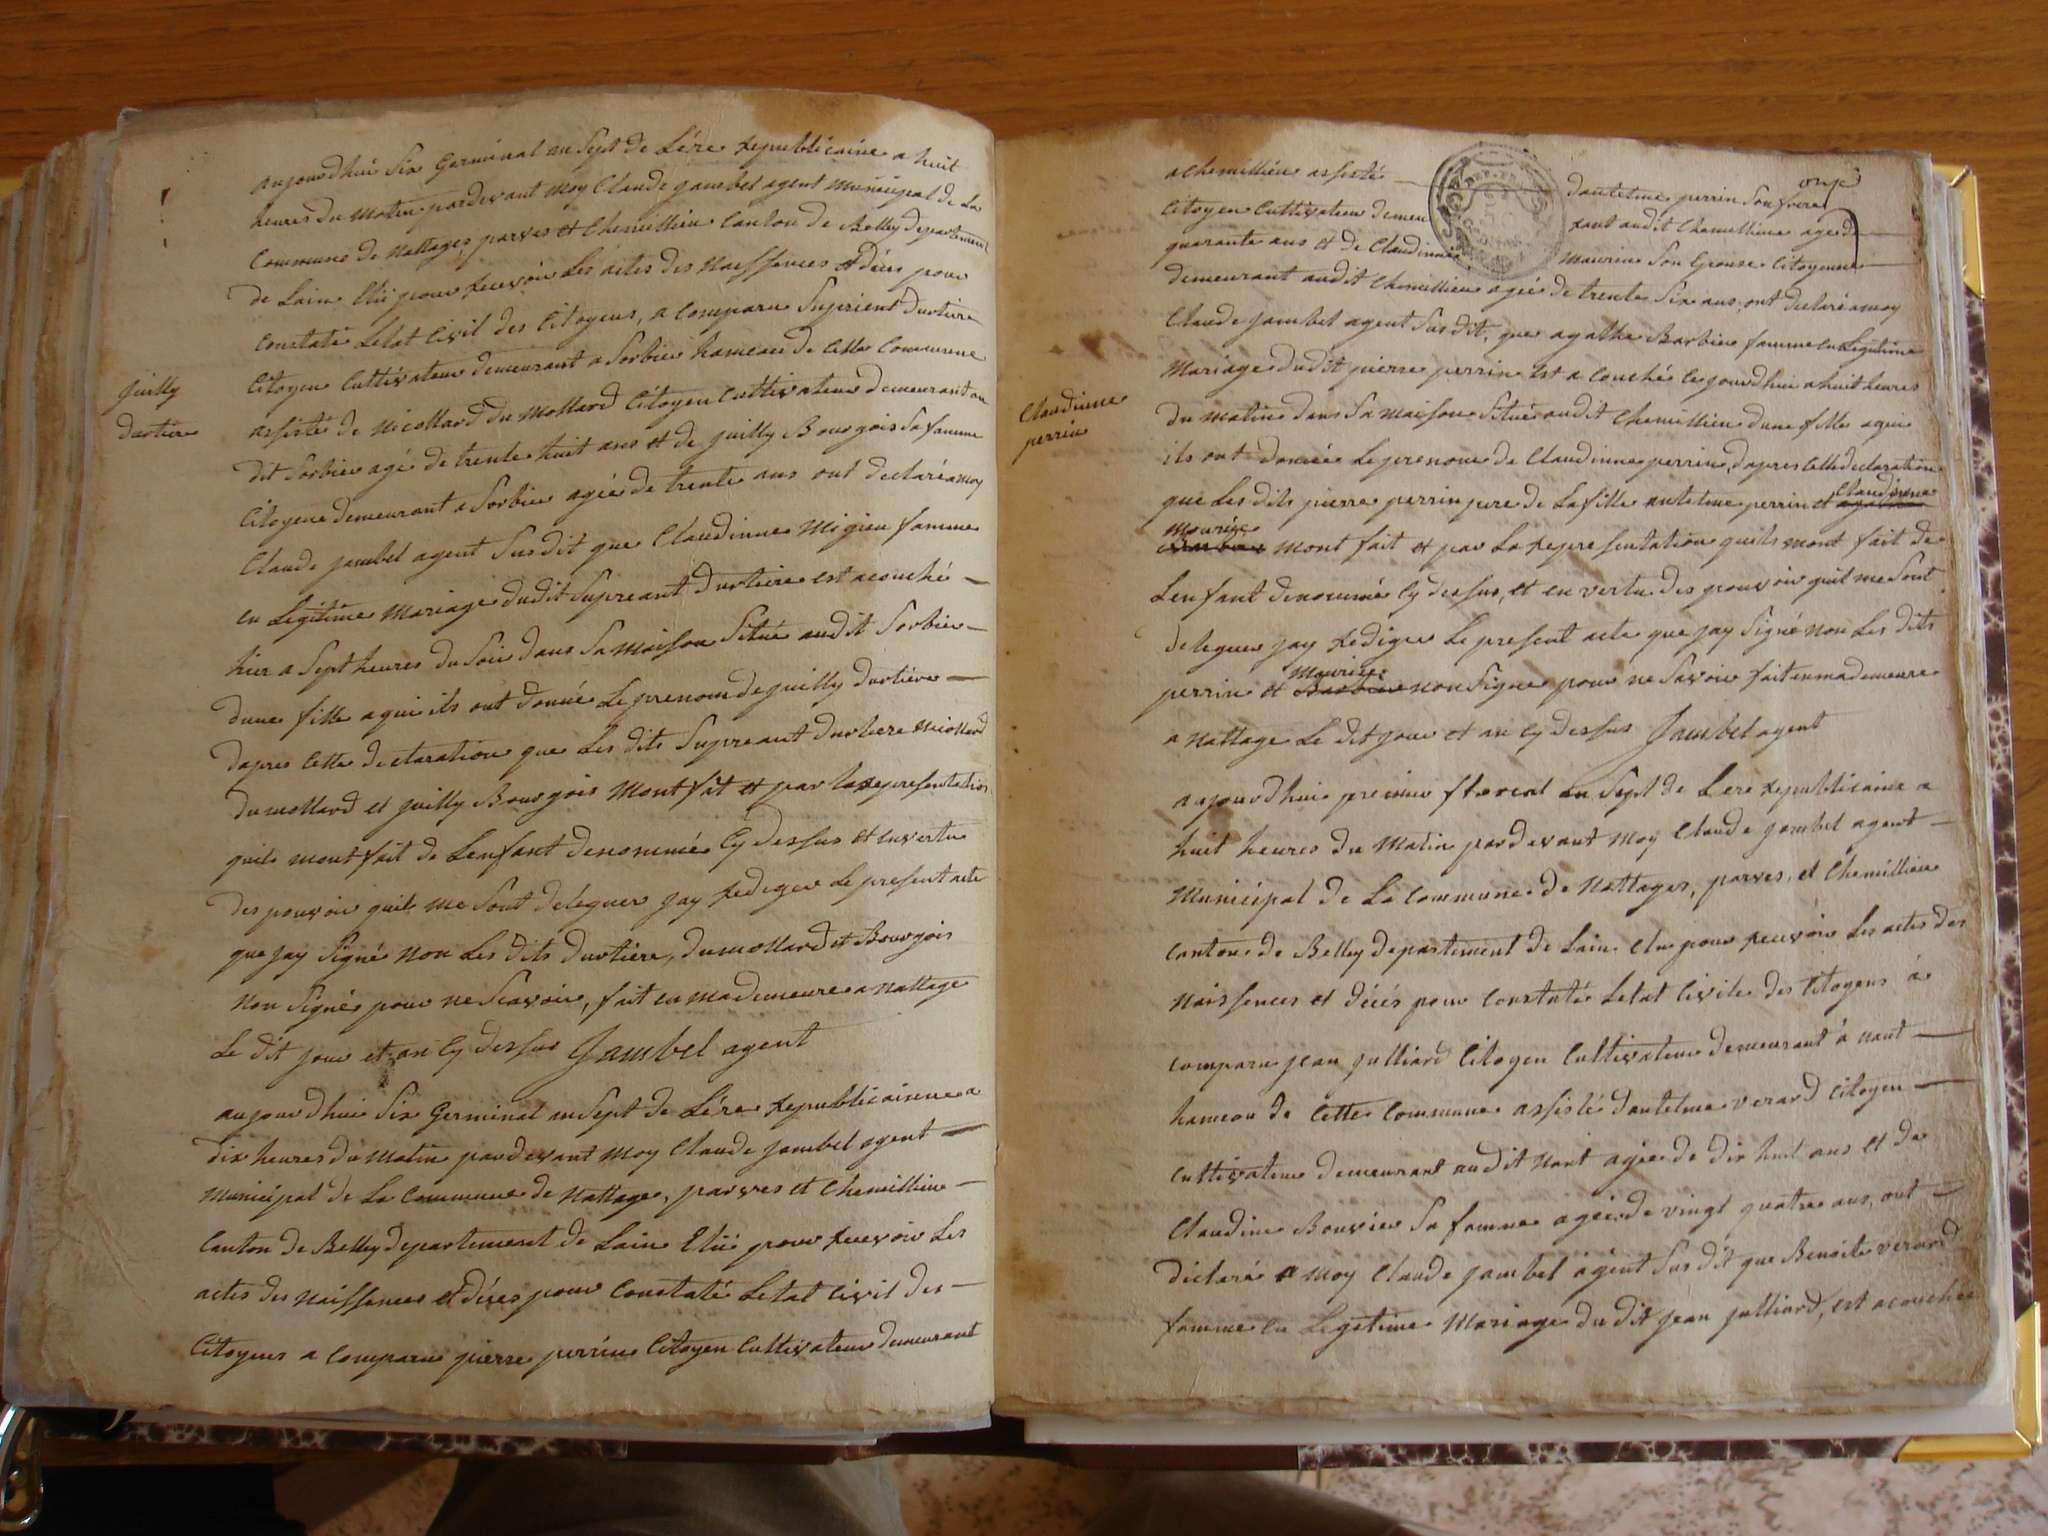 aujourdhui Six Germinal an Sept de Lére republicaine a huit
heures du Matin pardevant moy Claude jambel agent Municipal de La
Commune de Nattages, parves et Chemillieu Canton de Belley departement
de Lain Elû pour recevoir Les actes des Naissences et déces pour
Constaté Letat Civil des Citoyens, a comparu Suprient Durtiere
Citoyen Cultivateur demeurant a Sorbier hameau de Cette Commune
juilly
durtiere
assisté de Nicollard Du Mollard Citoyen Cultivateur demeurant au
dit Sorbier agé de trente huit ans et de juilly Bourgois Sa famme
Citoyene demeurant a Sorbier agée de trente ans ont declaré a moy
Claude jambel agent Susdit que Claudinne Migieu famme
en Légitime Mariage dudit Supreant Durtiere est acouché
hier a Sept heures du Soir dans Sa Maison Situé audit Sorbier
dune fille a qui ils ont donné Le prenom de juilly durtiere
dapres Cette declaration que Les dits Supreant Durtiere Nicollard
du mollard et juilly Bourgois Mont fait et par la representation
quils mont fait de Lenfant denommé Cy dessus et en vertu
des pouvoir quils me Sont deléguer jay rediger Le present acte
que jay Signé Non Les dits durtiere, dumollard et Bourgois
Non Signé pour ne Scavoir, fait en ma demeure a Nattage
Le dit jour et an Cy dessus Jambel agent
aujourdhui Six Germinal an Sept de Lére republicainne a
dix heures du Matin pardevant Moy Claude jambel agent
Municipal de La Commune de Nattage, parves et Chemillieu
Canton de Belley departement de Lain Elû pour recevoir Les
actes des Naissences et déces pour Constaté Letat Civil des
Citoyens a comparu pierre perrin Citoyen Cultivateur demeurant
a Chemillieu assisté dantelme perrin Son frere
Citoyen Cultivateur demeurant audit Chemillieu age de
quarante ans et de Claudinne Maurin Son Epouse Citoyenne
demeurant audit Chemillieu agée de trente Six ans, ont declaré a moy
Claude jambel agent Susdit, que agathe Barbier famme en Legitime
Mariage dudit pierre perrin est a couché Cejourdhui a huit heures
Claudinne
perrin
du Matin dans Sa Maison Situé audit Chemillieu dune fille a qui
ils ont donnée Le prenom de Claudinne perrin, dapres Cette declaration
Claudinne
que Les dits pierre perrin pere de La fille antelme perrin et
Mont fait et par La representation quils mont fait de
Lenfant denommé Cy dessus, et en vertu des pouvoir quil me Sont
deleguer jay rediger Le present acte que jay Signé Non Les dits
perrin et Barbier non Signe pour ne Savoir fait en ma demeure
a Nattage Le dit jour et an Cy dessus Jambel agent
aujourdhui premier floreal an Sept de Lere republicaine a
huit heures du Matin pardevant Moy Claude jambel agent
Municipal de La Commune de Nattages, parves, et Chemillieu
Canton de Belley departement de Lain Elu pour recevoir Les actes des
Naissences et décés pour Constaté Letat Civile des Citoyens à
comparu jean julliard Citoyen Cultivateur demeurant à Nant
hameau de Cette Commune assisté dantelme verard Citoyen
Cultivateur demeurant audit Nant agée de dix huit ans et de
Claudine Bouvier Sa famme agée de vingt quatre ans, ont
déclaré a Moy Claude jambel agent Susdit que Benoite verard
famme en Legetime Mariage du dit jean julliard, est acouchée